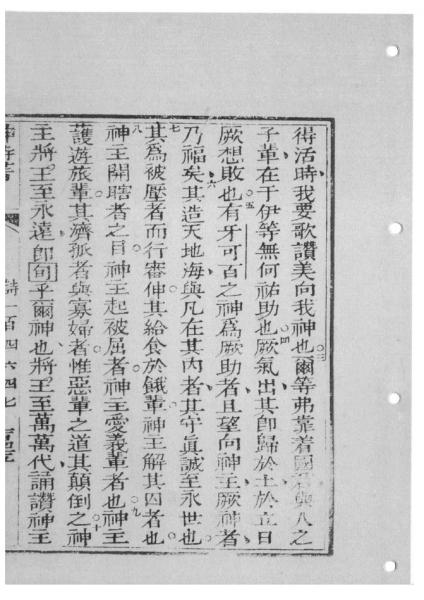 得活時我要歌讚美向我神也爾等弗靠着國君與人之
子輩在于伊等無何祐助也厥氣出其卽歸於土於立日
厥想敗也有牙可百之神爲厥助者且望向神主厥神者
乃福矣其造天地海與凡在其內者其守眞誠至永世也
其爲被壓者而行審伸其給食於餓輩神主解其囚者也
神主開瞎者之目神主起被屈者神主愛義輩者也神主
護遊旅輩其濟孤者與寡婦者惟惡輩之道其顛倒之神
主將王至永遠卽旬乎爾神也將王至萬萬代誦讚神主
神詩書 詩一百四六四七